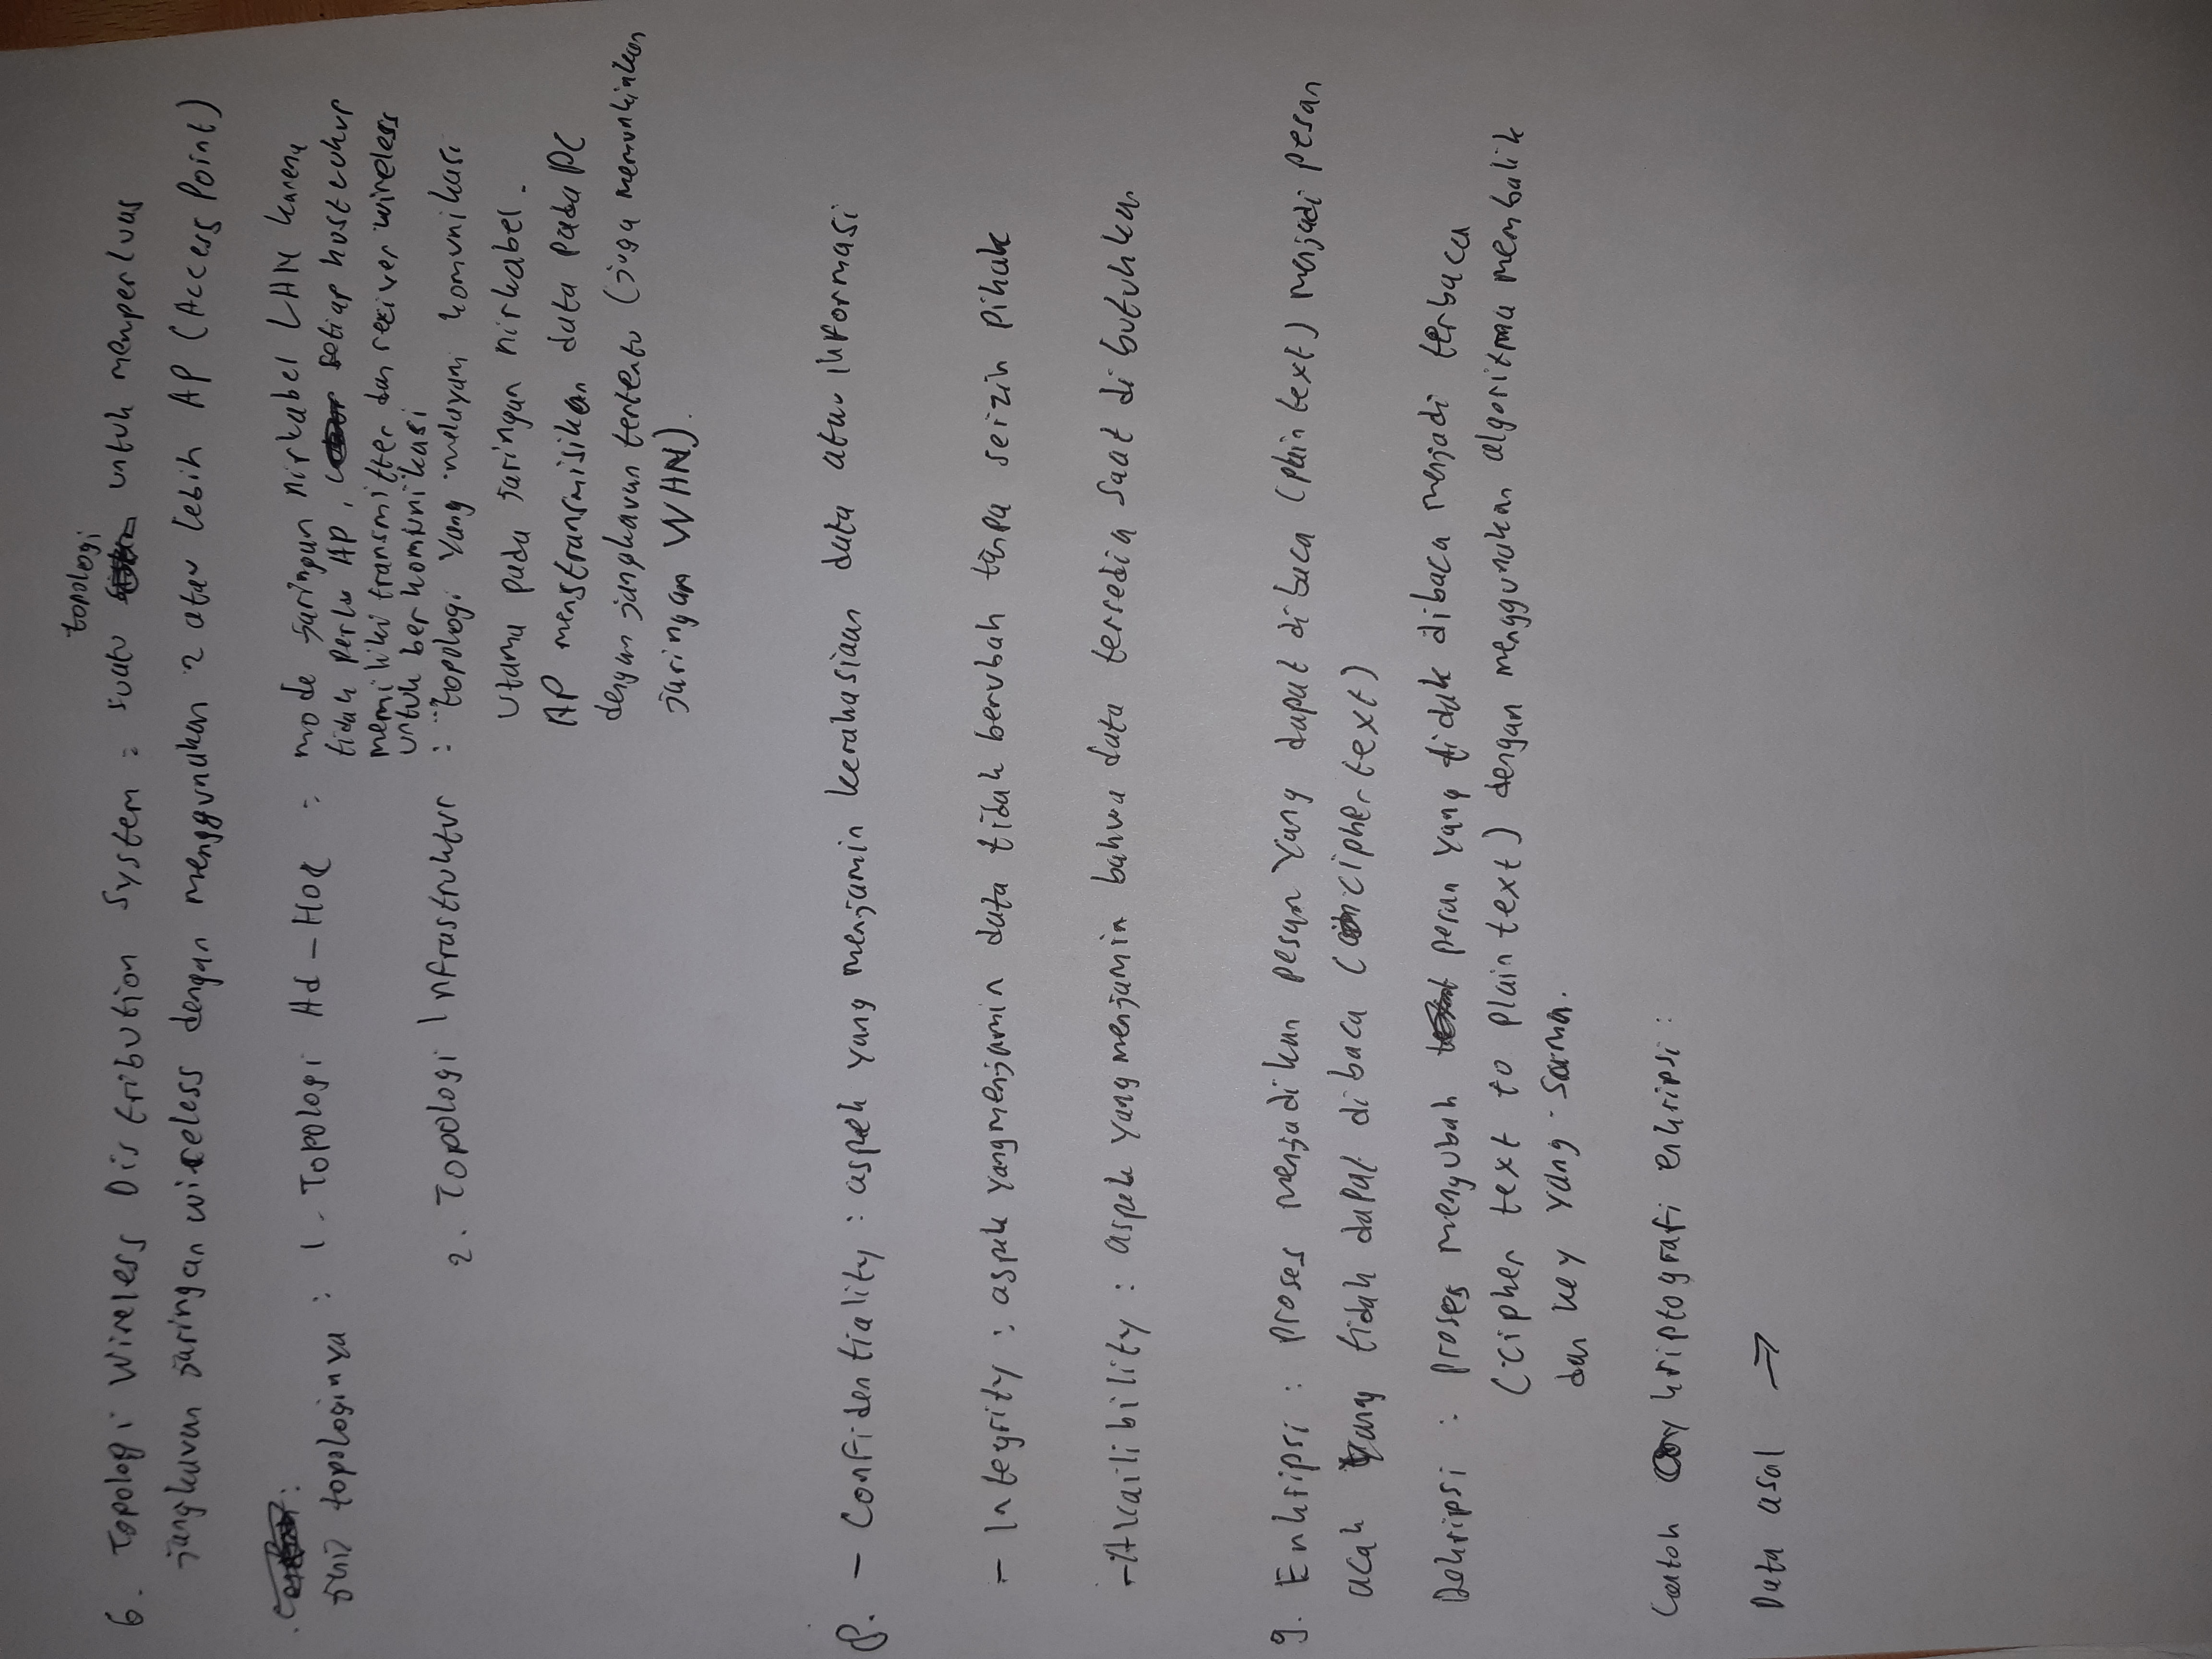 topologi
6. Topologi Wireless Distribution System : suatu untuk memperluas
jangkauan jaringan wireless dengan menggunakan 2 atau lebih AP (Access Point)
topologinya : 1. Topologi Ad-Hoc : mode jaringan nirkabel LAN karena
tidak perlu AP, setiap host cukup
memiliki transmitter dan reciver wireless
untuk berkomunikasi
2. Topologi Infrastruktur : topologi yang melayani komunikasi
utama pada jaringan nirkabel.
AP menstransmisikan data pada PC
dengan jangkauan tertentu (juga memunkinkan
jaringan WAN).
8. - Confidentiality : aspek yang menjamin kerahasiaan data atau informasi
- Integrity : aspek yang menjamin data tidak berubah tanpa seizin pihak
- Availibility : aspek yang menjamin bahwa data tersedia saat dibutuhkan
9. Enkripsi : proses menjadikan pesan yang dapat dibaca (plain text) menjadi pesan
acak yang tidak dapat dibaca (cipher text)
Dekripsi : proses mengubah pesan yang tidak dibaca menjadi terbaca
(cipher text to plain text) dengan menggunakan algoritma membalik
dan key yang sama.
Contoh kriptografi enkripsi :
Data asal ⇒